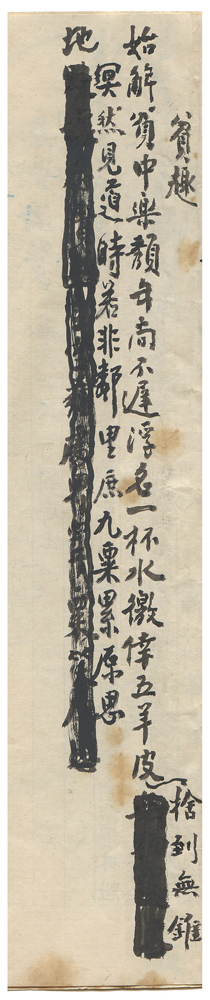 貧趣
始解貧中樂頹年尚不遲浮名一杯水徼倖五羊皮
捨到無錐
地
冥然見道時若非鄰里庶九粟累原思